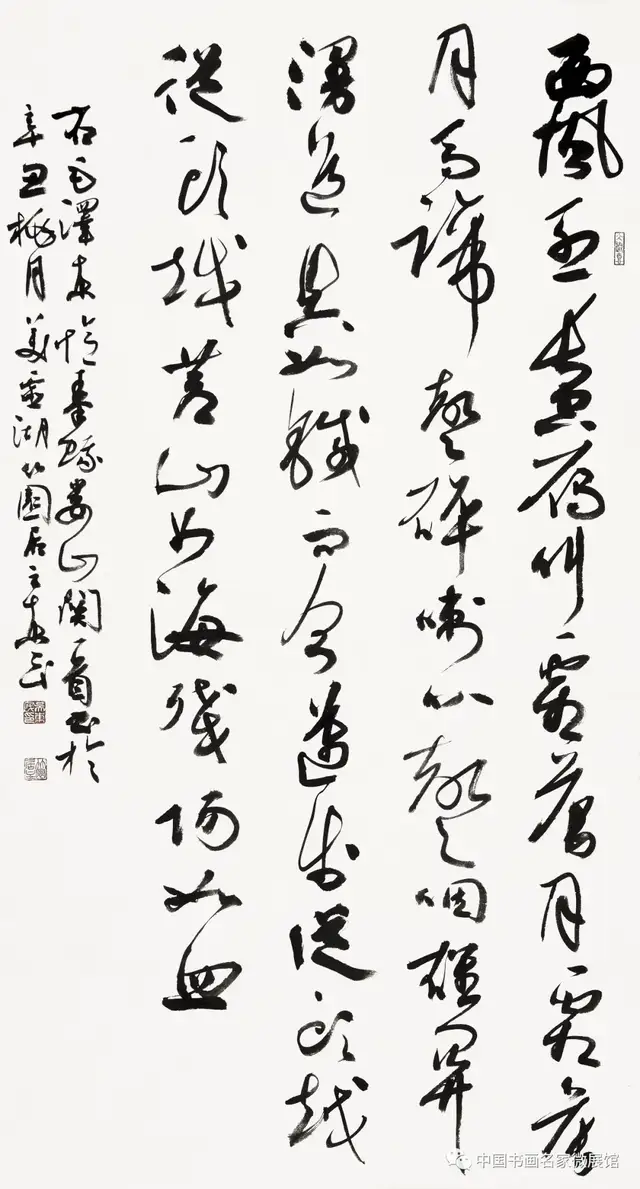 西風烈長空雁叫霜晨月霜晨
月馬蹄聲碎喇叭聲咽雄關
漫道真如鐵而今邁步從頭越
從頭越蒼山如海殘陽如血
右毛澤東憶秦娥婁山關一首書於
辛丑梅月湖竹園居主
中国书画名家微展馆